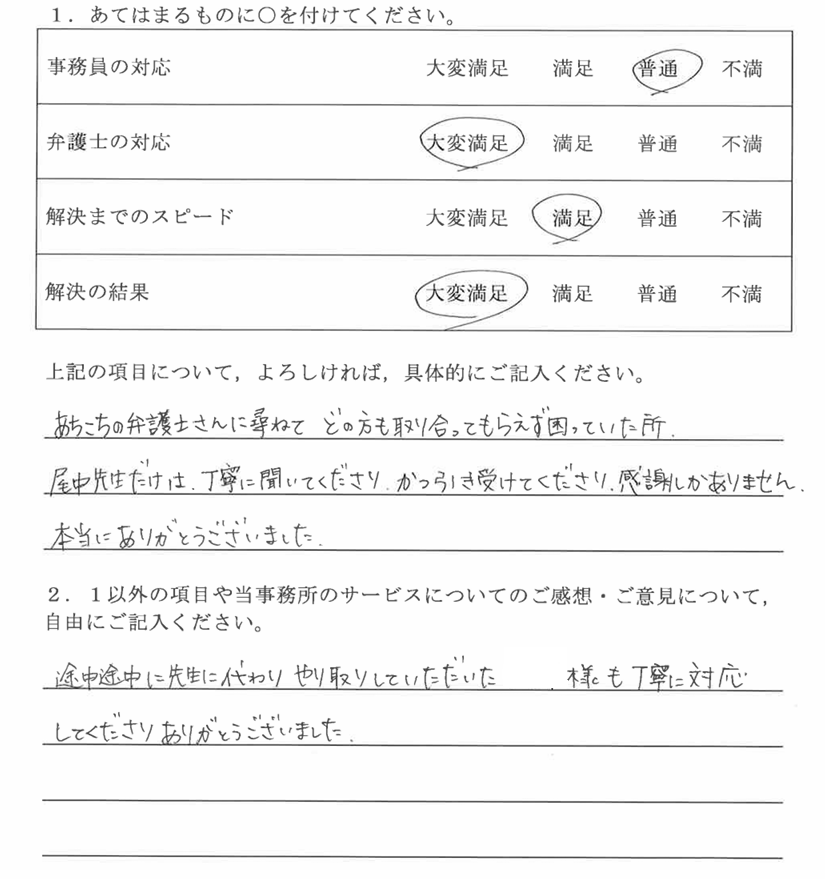 １．あてはまるものに○を付けてください。
事務員の対応 大変満足 満足 普通 不満
弁護士の対応 大変満足 満足 普通 不満
解決までのスピード 大変満足 満足 普通 不満
解決の結果 大変満足 満足 普通 不満
上記の項目について，よろしければ，具体的にご記入ください。
あちこちの弁護士さんに尋ねて どの方も取り合ってもらえず困っていた所．
尾中先生だけは．丁寧に聞いてくださり．かつ引き受けてくださり．感謝しかありません．
本当にありがとうございました．
２．１以外の項目や当事務所のサービスについてのご感想・ご意見について，
自由にご記入ください。
途中途中に先生に代わり やり取りしていただいた ．様も丁寧に対応
してくださりありがとうございました．